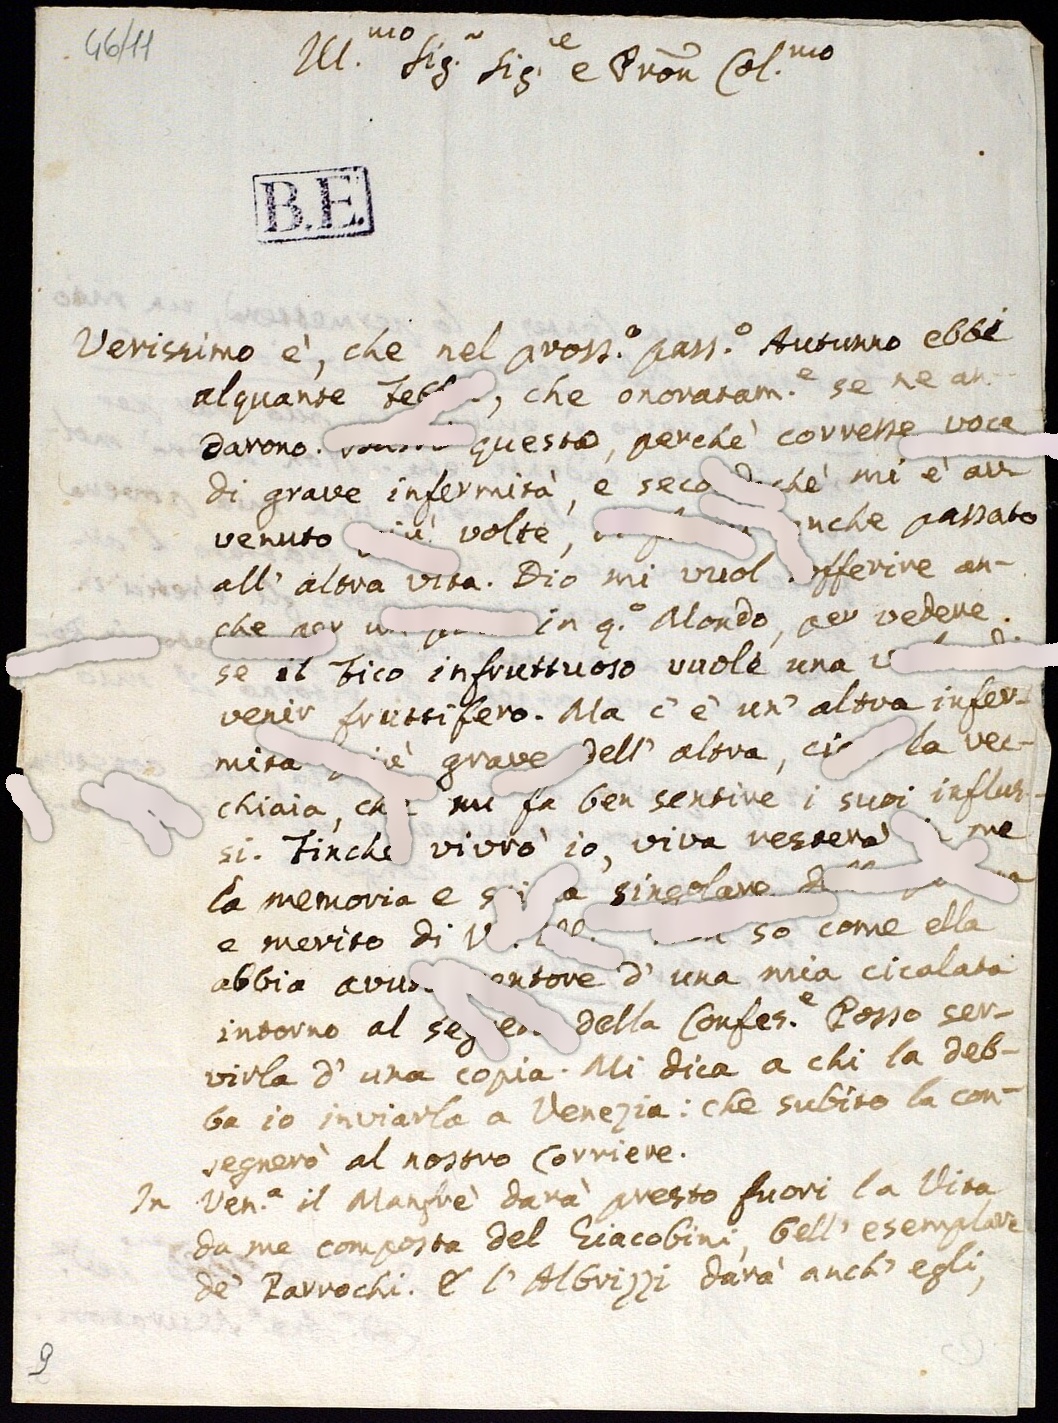 46/11
Ill.mo Sig.r Sig.re e Pron Col.mo
B.E.
Verissimo è, che nel pross.o pass.o Autunno ebbi
alquante, che onoratam.e se ne an-
darono. questo, perchè corresse voce
di grave infermità, e mi è av-
venuto più volte, anche passato
all' altra vita. Dio mi vuol sofferire an-
che per un in q.o Mondo, per vedere
se il Fico infruttuoso vuole una
venir fruttifero. Ma c' è un' altra infer-
mità più grave dell' altra, cioè la vec-
chiaia, che mi fa ben sentire i suoi influs-
si. Finchè vivrò io, viva resterà in me
la memoria e singolare
e merito di V. so come ella
abbia d' una mia cicalata
intorno al segreto della Confes.e Posso ser-
virla d' una copia. Mi dica a chi la deb-
ba io inviarla a Venezia: che subito la con-
segnerò al nostro Corriere.
In Ven.a il Manfrè darà presto fuori la Vita
da me composta del Giacobini, bell' esemplare
de' Parrochi. E l' Albrizzi darà anch' egli,
9